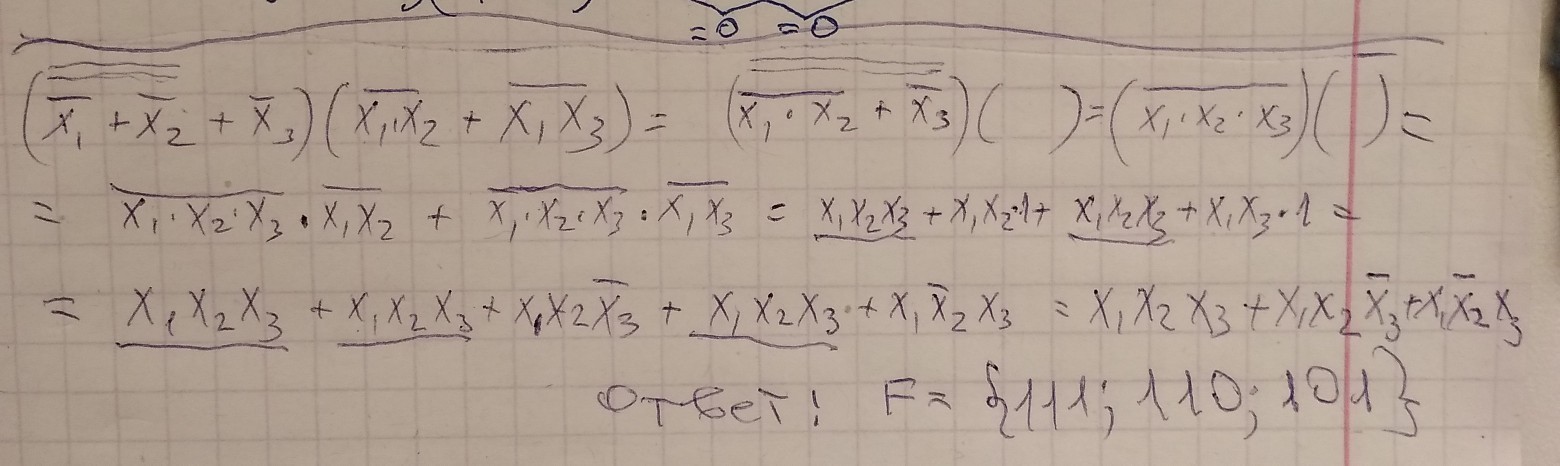 = 0 = 0
(x̿̅₁ + x̿̅₂ + x̅₃)(x̅₁̅·̅x̅₂ + x̅₁̅x̅₃) = (x̅₁̅·̅x̅₂ + x̅₃)( ) = (x̅₁̅·̅x̅₂̅·̅x̅₃)( ) =
= x̅₁̅·̅x̅₂̅·̅x̅₃ · x̅₁̅x̅₂ + x̅₁̅·̅x̅₂̅·̅x̅₃ · x̅₁̅x̅₃ = x₁x₂x₃ + x₁x₂·1 + x₁x₂x₃ + x₁x₃·1 =
= x₁x₂x₃ + x₁x₂x₃ + x₁x₂x̅₃ + x₁x₂x₃ + x₁x̅₂x₃ = x₁x₂x₃ + x₁x₂x̅₃ + x₁x̅₂x₃
Ответ! F = {111; 110; 101}